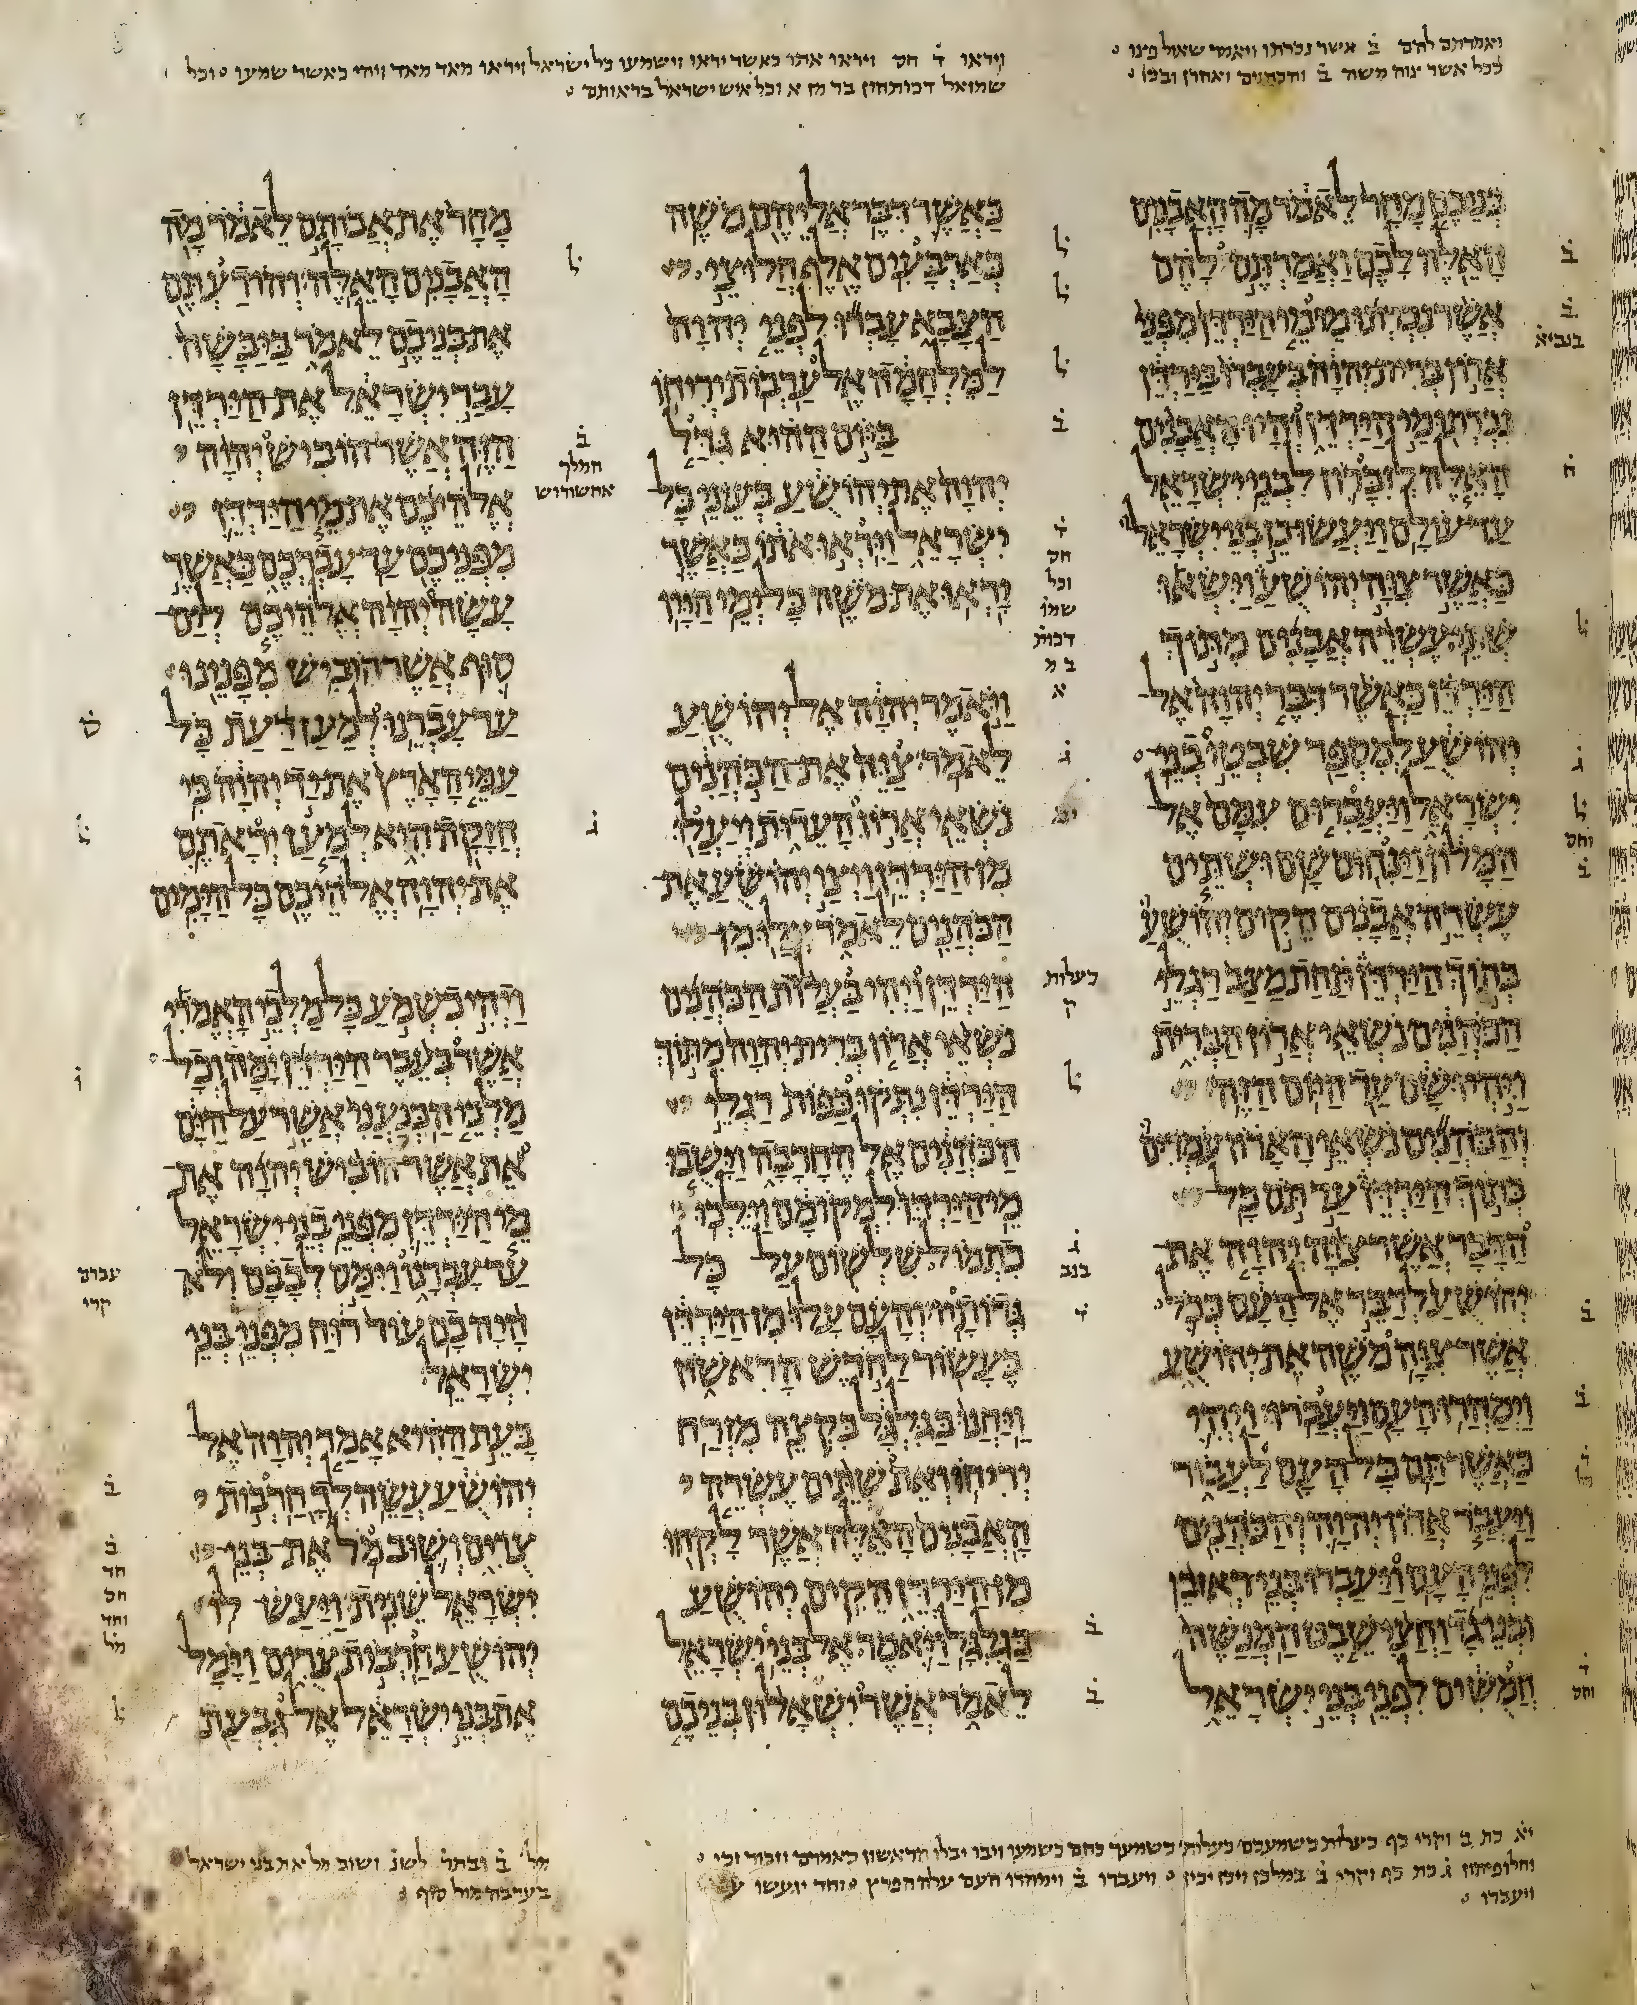 ואמרתם להם ב אשר נכרתו ויאמר שאול
ככל אשר צוה משה ב והכהנים ואהרן ובניו
ויראו ד חס ויראו אתו כאשר יראו וישמעו כל ישראל ויראו מאד מאד ויהי כאשר שמעו וכל
שמואל דכותהון בר מן א וכל איש ישראל בראותם
בניכם מחר לאמר מה האבנים
האלה לכם ואמרתם להם
אשר נכרתו מימי הירדן מפני
ארון ברית יהוה בעברו בירדן
נכרתו מי הירדן והיו האבנים
האלה לזכרון לבני ישראל
עד עולם ויעשו כן בני ישראל
כאשר צוה יהושע וישאו
שתי עשרה אבנים מתוך
הירדן כאשר דבר יהוה אל
יהושע למספר שבטי בני
ישראל ויעברום עמם אל
המלון וינחום שם ושתים
עשרה אבנים הקים יהושע
בתוך הירדן תחת מצב רגלי
הכהנים נשאי ארון הברית
ויהיו שם עד היום הזה
והכהנים נשאי הארון עמדים
בתוך הירדן עד תם כל
הדבר אשר צוה יהוה את
יהושע לדבר אל העם ככל
אשר צוה משה את יהושע
וימהרו העם ויעברו ויהי
כאשר תם כל העם לעבור
ויעבר ארון יהוה והכהנים
לפני העם ויעברו בני ראובן
ובני גד וחצי שבט המנשה
חמשים לפני בני ישראל
ב
ב
בנביא
ח
ל
ג
ל
וחס
ב
ב
ב
ד
וחס
כאשר דבר אליהם משה
כארבעים אלף חלוצי
הצבא עברו לפני יהוה
למלחמה אל ערבות יריחו
ביום ההוא גדל
יהוה את יהושע בעיני כל
ישראל ויראו אתו כאשר
יראו את משה כל ימי חייו
ויאמר יהוה אל יהושע
לאמר צוה את הכהנים
נשאי ארון העדות ויעלו
מן הירדן ויצו יהושע את
הכהנים לאמר עלו מן
הירדן ויהי בעלות הכהנים
נשאי ארון ברית יהוה מתוך
הירדן נתקו כפות רגלי
הכהנים אל החרבה וישבו
מי הירדן למקומם וילכו
כתמול שלשום על כל
גדותיו והעם עלו מן הירדן
בעשור לחדש הראשון
ויחנו בגלגל בקצה מזרח
יריחו ואת שתים עשרה
האבנים האלה אשר לקחו
מן הירדן הקים יהושע
בגלגל ויאמר אל בני ישראל
לאמר אשר ישאלון בניכם
ל
ל
ל
ב
ד
חס
וכל
שמו
דכות
ב מ
א
ג
כעלות
ק
ל
ג
בנב
ד
ב
ב
מחר את אבותם לאמר מה
האבנים האלה והודעתם
את בניכם לאמר ביבשה
עבר ישראל את הירדן
הזה אשר הוביש יהוה
אלהיכם את מי הירדן
מפניכם עד עברכם כאשר
עשה יהוה אלהיכם לים
סוף אשר הוביש מפנינו
עד עברנו למען דעת כל
עמי הארץ את יד יהוה כי
חזקה היא למען יראתם
את יהוה אלהיכם כל הימים
ויהי כשמע כל מלכי האמרי
אשר בעבר הירדן ימה וכל
מלכי הכנעני אשר על הים
את אשר הוביש יהוה את
מי הירדן מפני בני ישראל
עד עברנו וימס לבבם ולא
היה בם עוד רוח מפני בני
ישראל
בעת ההיא אמר יהוה אל
יהושע עשה לך חרבות
צרים ושוב מל את בני
ישראל שנית ויעש לו
יהושע חרבות צרים וימל
את בני ישראל אל גבעת
ל
ב
המלך
אחשורוש
ג
ל
ו
עברם
קרי
ב
ב
חד
חס
וחד
מל
ל
יא כת ב וקרי כף בשמעכם בעלות כשמעך
וחלופיהון ג כת כף וקרי ב ויעברו ב וימהרו העם עלה הפרץ וחד יגעשו עם
ויעברו
מל ב ובתר לשנ ושוב מל את בני ישראל
בערבה מול סוף